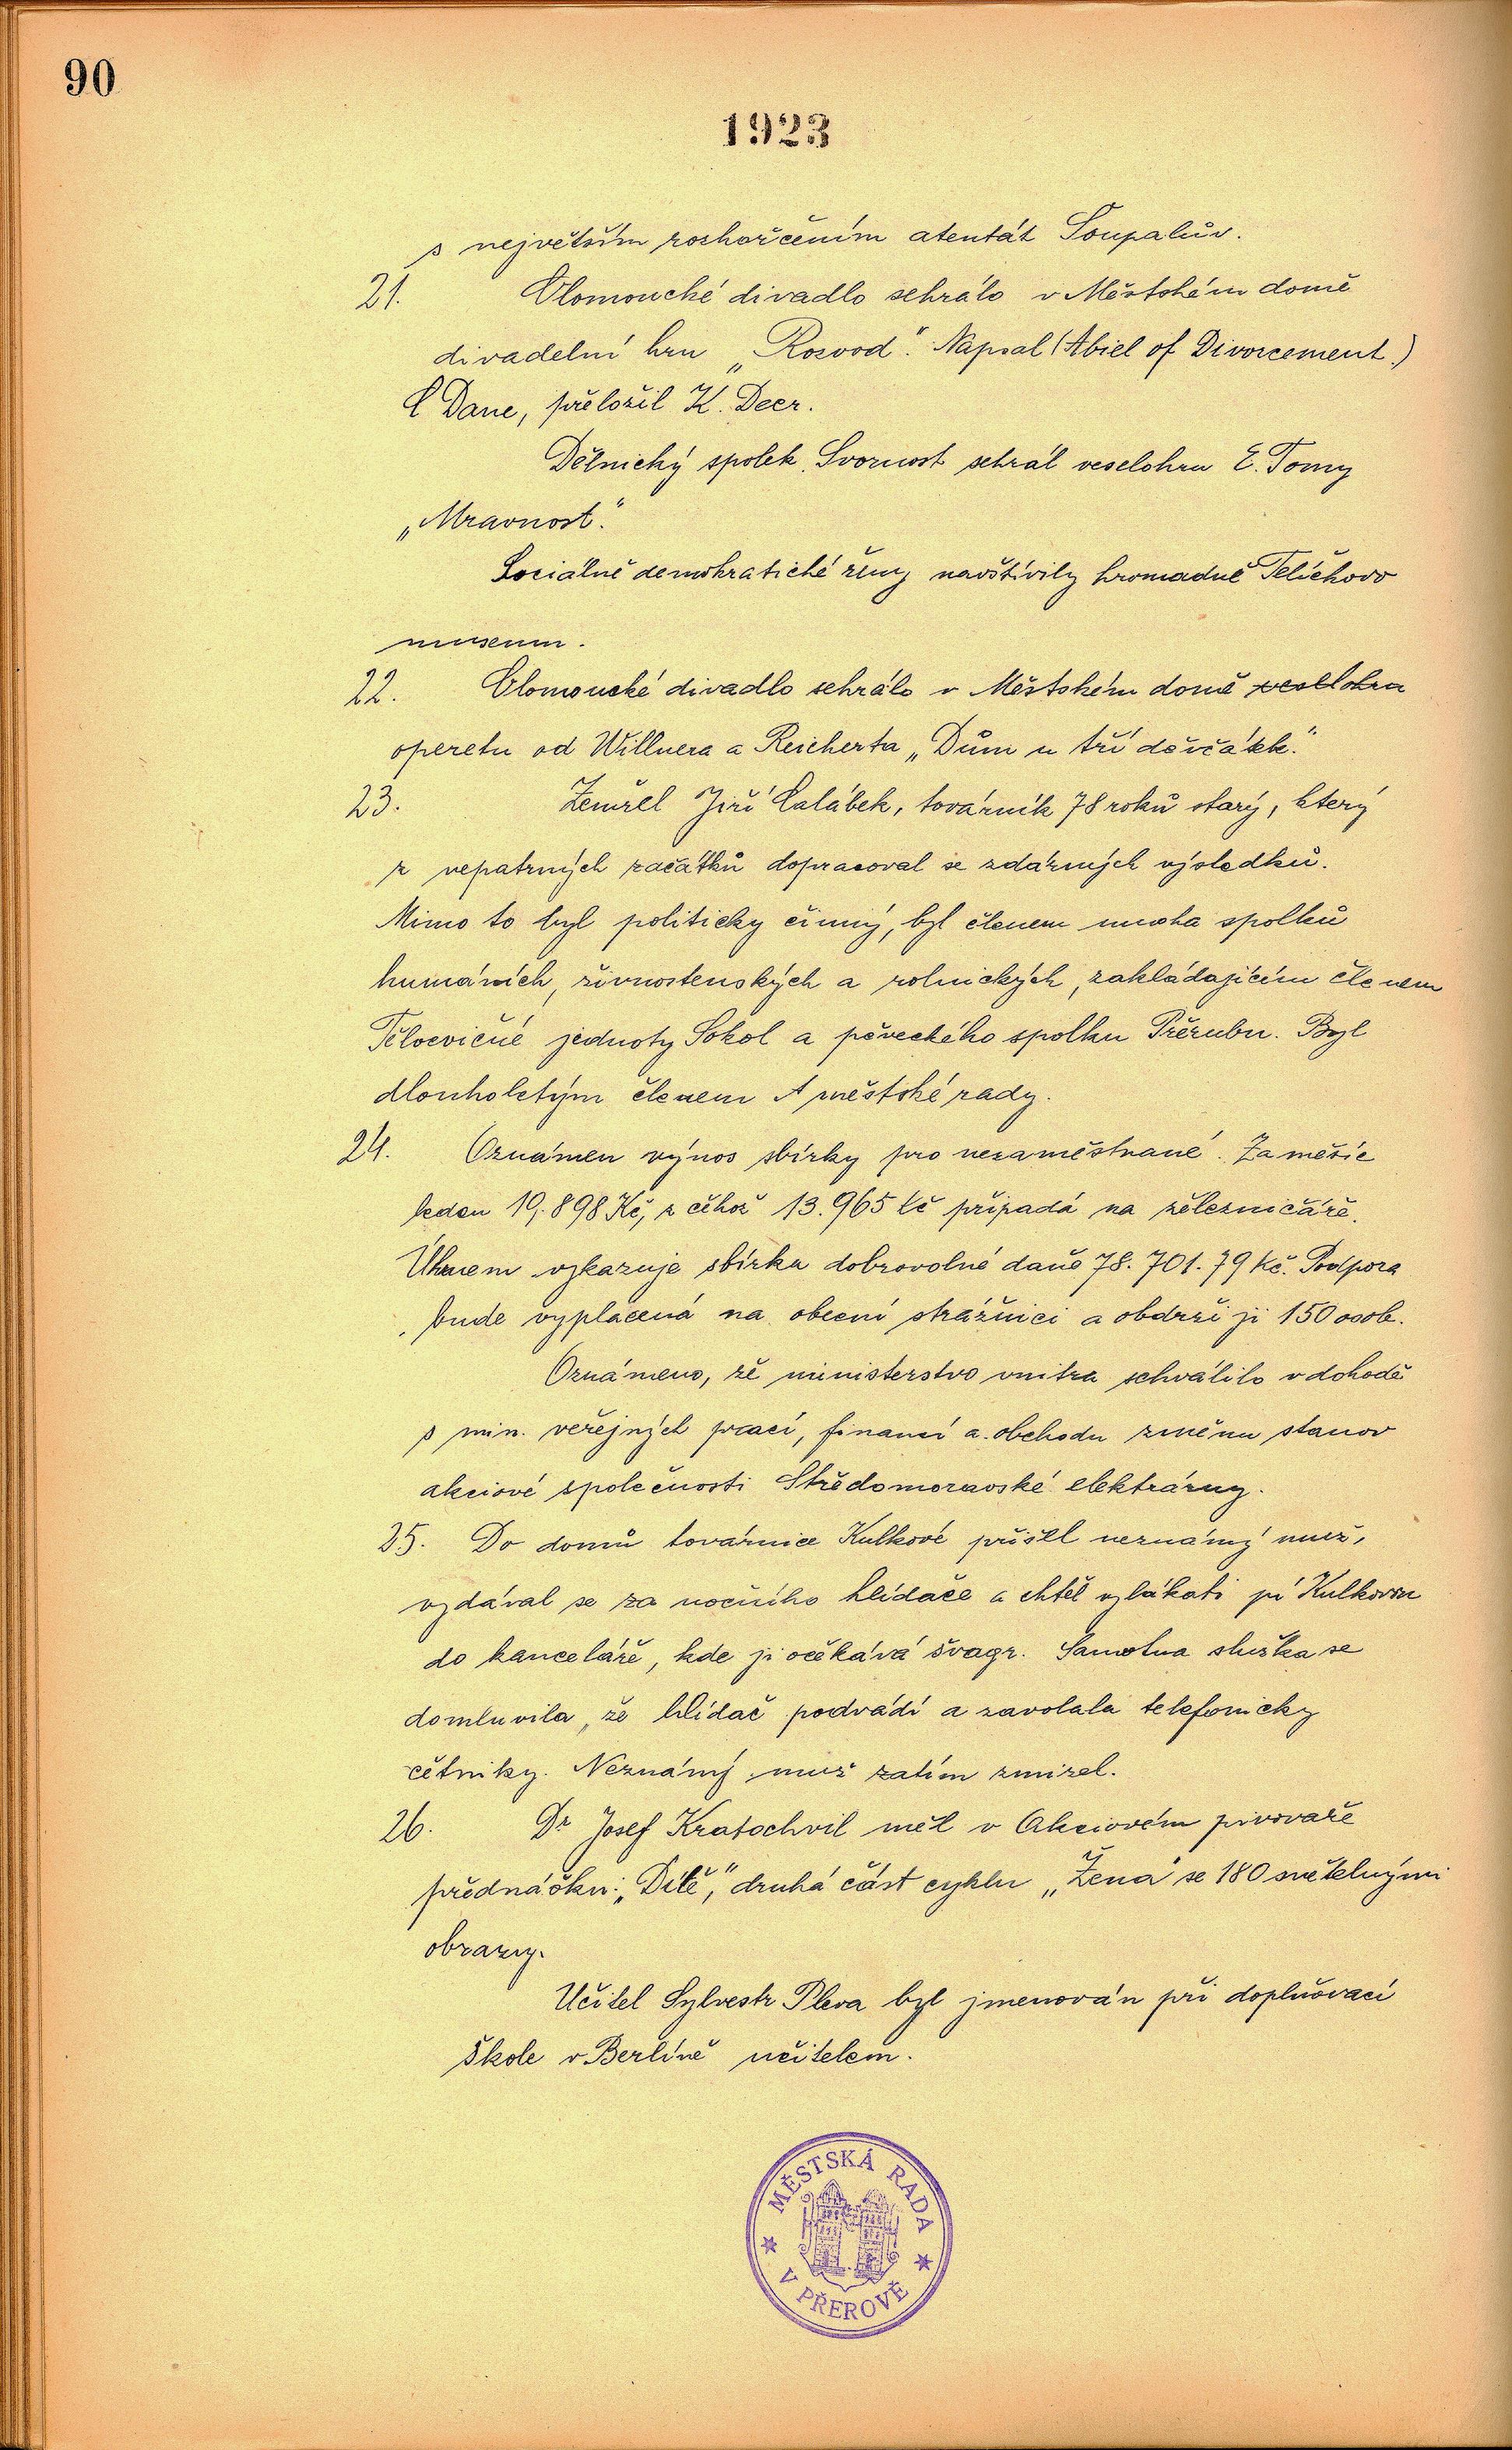 90
1923
s největším rozhořčením atentát Šoupalův.
21. Olomoucké divadlo sehrálo v Městském domě
divadelní hru „Rozvod." Napsal (Abiel of Divorcement.)
C Dane, přeložil K. Deer.
Dělnický spolek Svornost sehrál veselohru E. Tomy
„Mravnost."
Sociálně demokratické ženy navštívily hromadně Telíčkovo
museum.
22. Olomoucké divadlo sehrálo v Městském domě veselohru
operetu od Willnera a Reicherta „Dům u tří děvčátek."
23. Zemřel Jiří Calábek, továrník 78 roků starý, který
z nepatrných začátků dopracoval se zdárných výsledků.
Mimo to byl politicky činný, byl členem mnoha spolků
humáních, živnostenských a rolnických, zakládajícím členem
Tělocvičné jednoty Sokol a pěveckého spolku Přerubu. Byl
dlouholetým členem A městské rady.
24. Oznámen výnos sbírky pro nezaměstnané. Za měsíc
leden 19.898 Kč, z čehož 13.965 Kč připadá na železničáře.
Úhrnem vykazuje sbírka dobrovolné daně 78.701.79 Kč. Podpora
bude vyplácená na obecní strážnici a obdrží ji 150 osob.
Oznámeno, že ministerstvo vnitra schválilo v dohodě
s min. veřejných prací, financí a obchodu změnu stanov
akciové společnosti Středomoravské elektrárny.
25. Do domů továrnice Kulkové přišel neznámý muž,
vydával se za nočního hlídače a chtěl vylákati pí Kulkovou
do kanceláře, kde ji očekává švagr. Samotna služka se
domluvila, že hlídač podvádí a zavolala telefonicky
četníky. Neznámý muž zatím zmizel.
26. Dr Josef Kratochvil měl v Akciovém pivovaře
přednášku: „Dítě," druhá část cyklu „Žena" se 180 světelnými
obrazy.
Učitel Sylvestr Pleva byl jmenován při doplňovací
škole v Berlíně učitelem.
MĚSTSKÁ RADA
V PŘEROVĚ